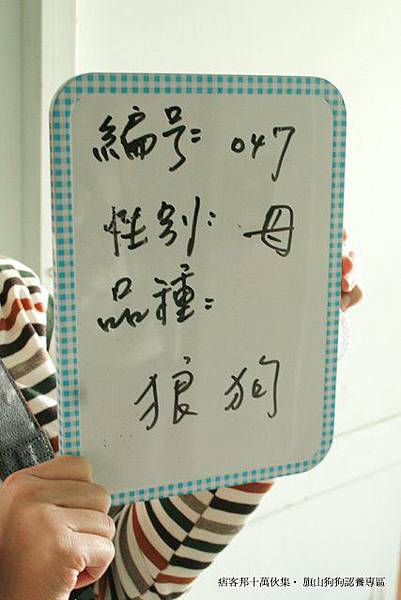 編号: 047
性别: 母
品種:
狼狗
痞客邦十萬伙集・旗山狗狗認養專區